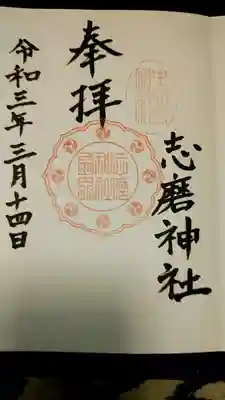 奉拝
志磨神社
令和三年三月十四日